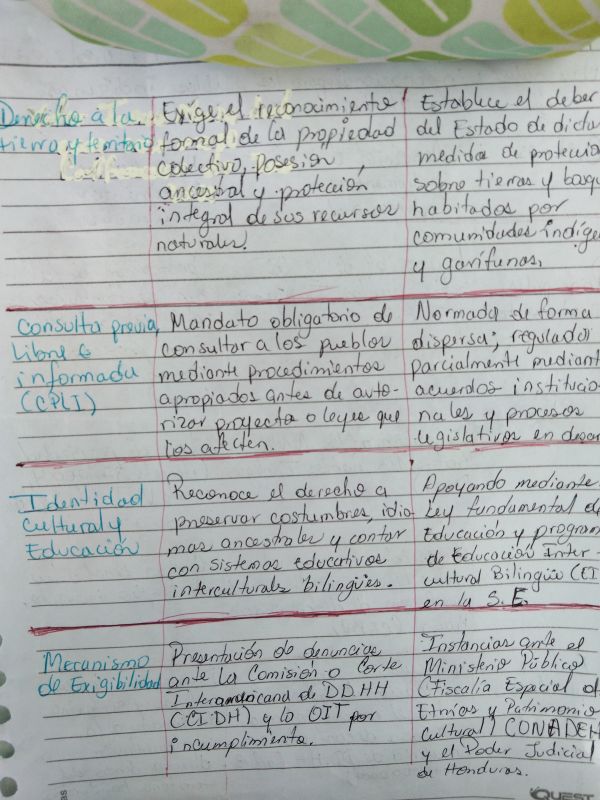 Derecho a la
tierra y territorio
Exige el reconocimiento
formal de la propiedad
colectiva, posesión
ancestral y protección
integral de sus recursos
naturales.
Establece el deber
del Estado de dicta
medidas de protección
sobre tierras y bosque
habitados por
comunidades indíge
y garífunas.
Consulta previa,
Libre e
informada
(CPLI)
Mandato obligatorio de
consultar a los pueblos
mediante procedimientos
apropiados antes de auto-
rizar proyecto o leyes que
los afecten.
Normada de forma
dispersa; regulado
parcialmente mediant
acuerdos institucio
nales y procesos
legislativos en desar
Identidad
Cultural y
Educación
Reconoce el derecho a
preservar costumbres, idio
mas ancestrales y contar
con sistemas educativos
interculturals bilingües.
Apoyando mediante
Ley fundamental de
Educación y program
de Educación Inter-
cultural Bilingüe (EI
en la S.E.
Mecanismo
de Exigibilidad
Presentación de denuncias
ante la Comisión o Corte
Interamericana de DDHH
(CIDH) y la OIT por
incumplimiento.
Instancias ante el
Ministerio Público
(Fiscalía Espacial de
Etnias y Patrimonio
Cultural) CONADEH
y el Poder Judicial
de Honduras.
QUEST